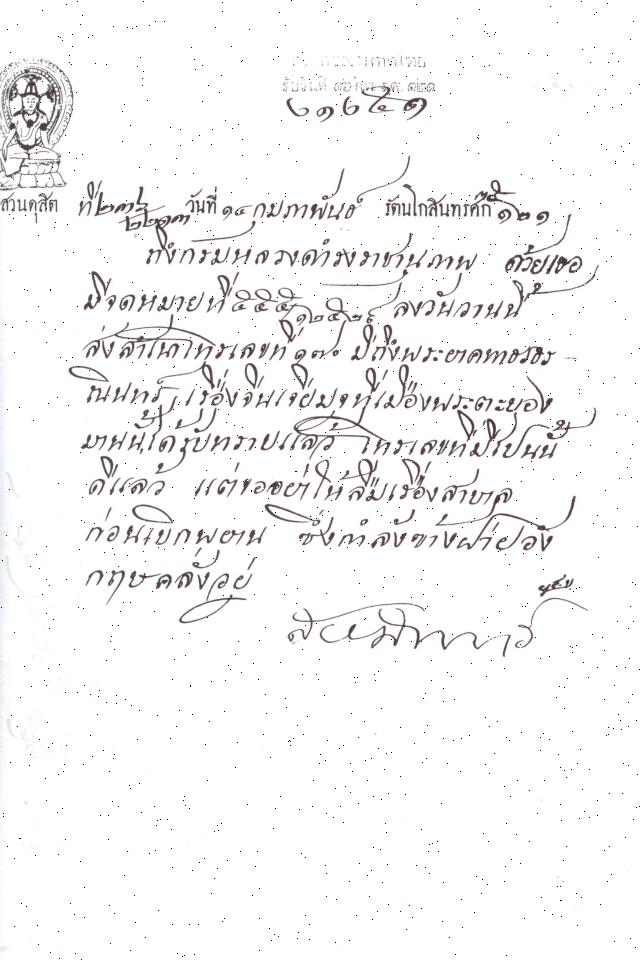 รับวันที่ ๑๖ กพ ร.ศ. ๑๒๑
๖๑๖๕๑
สวนดุสิต ที่ วันที่ ๑๔ กุมภาพันธ์ รัตนโกสินทรศก๊ ๑๒๑
ถึงกรมหลวงดำรงราชานุภาพ ด้วยเธอ
มีจดหมายที่ ลงวันวานนี้
ส่งสำเนาโทรเลขที่ ๑๗๐ มีถึงพระยาคทาธรธร
ณินทร์ เรื่องจีนเจียมจุที่เมืองพระตะบอง
มานั้นได้รับทราบแล้ว โทรเลขที่มีไปนั้น
ดีแล้ว แต่ขออย่าให้ลืมเรื่องสาบาล
ก่อนเบิกพยาน ซึ่งกำลังข้างฝ่ายอัง
กฤษคลั่งอยู่
สยามินทร์